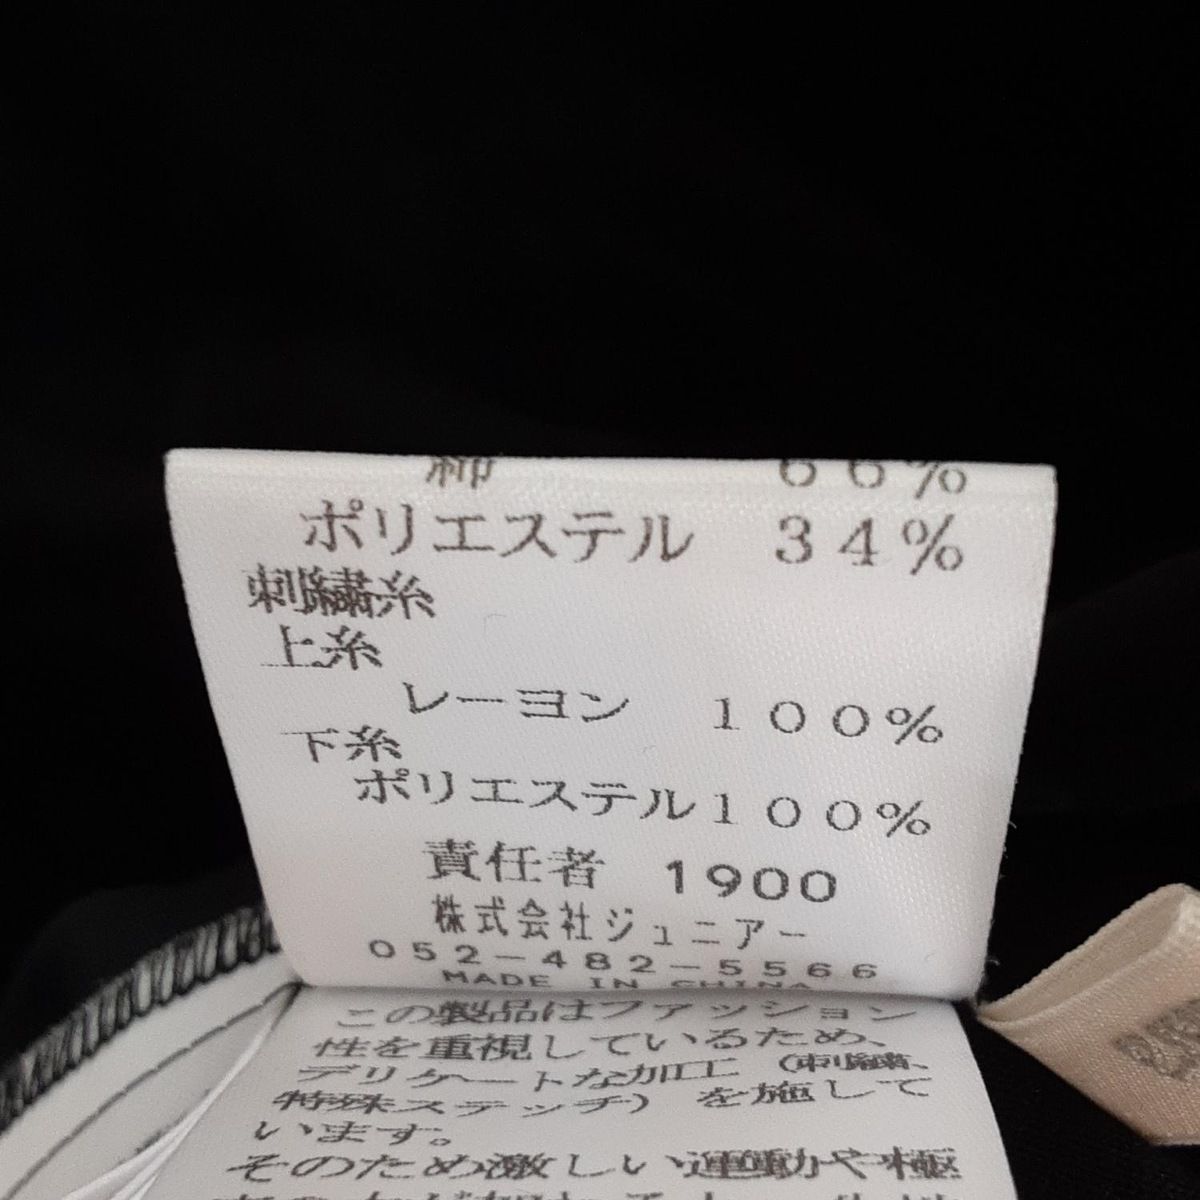 綿 66%
ポリエステル 34%
刺繍糸
上糸
レーヨン 100%
下糸
ポリエステル100%
責任者 1900
株式会社ジュニアー
052-482-5566
MADE IN CHINA
この製品はファッション
性を重視しているため、
デリケートな加工(刺繍、
特殊ステッチ)を施して
います。
そのため激しい運動や極